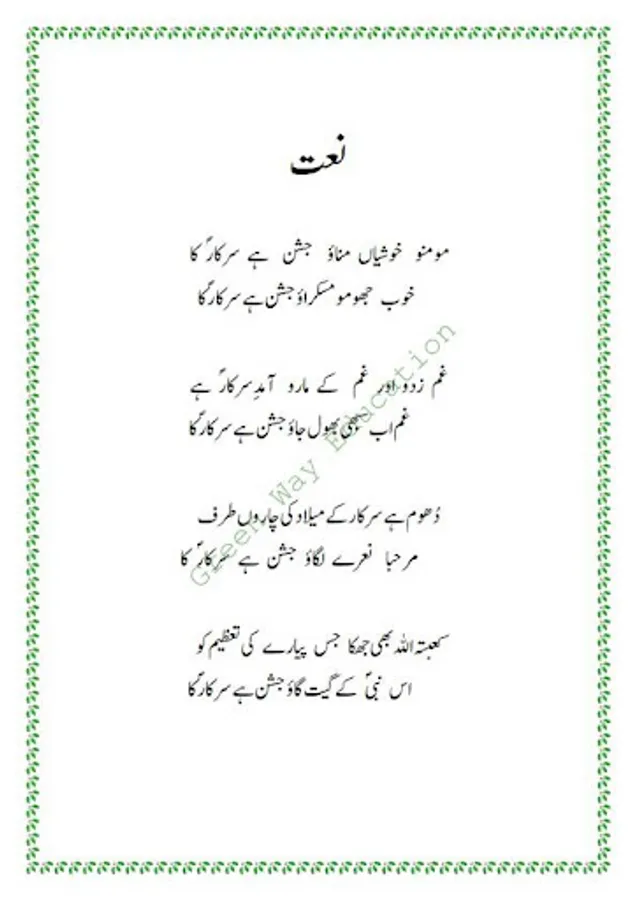 نعت
مومنو خوشیاں مناؤ جشن ہے سرکارؐ کا
خوب جھومو مسکراؤ جشن ہے سرکارؐ کا
غم زدو اور غم کے مارو آمدِ سرکارؐ ہے
غم اب بھی بھول جاؤ جشن ہے سرکارؐ کا
دُھوم ہے سرکار کے میلاد کی چاروں طرف
مرحبا نعرے لگاؤ جشن ہے سرکارؐ کا
کعبتہ اللہ بھی جھکا جس پیارے کی تعظیم کو
اس نبیؐ کے گیت گاؤ جشن ہے سرکارؐ کا
Green Way Education